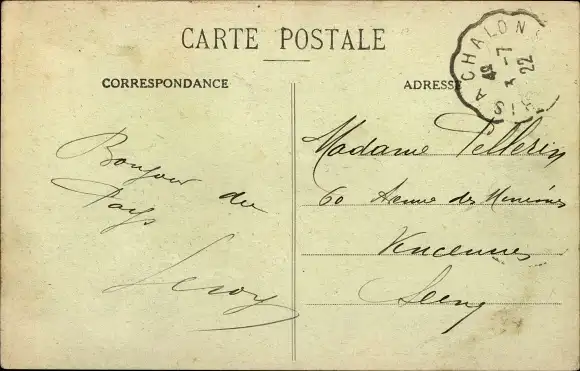 CARTE POSTALE
CORRESPONDANCE
ADRESSE
A CHALON
3 -7
22
Bonjour du
Pays
Leroy
Madame Pellerin
60 Avenue des
Vincennes
Seine